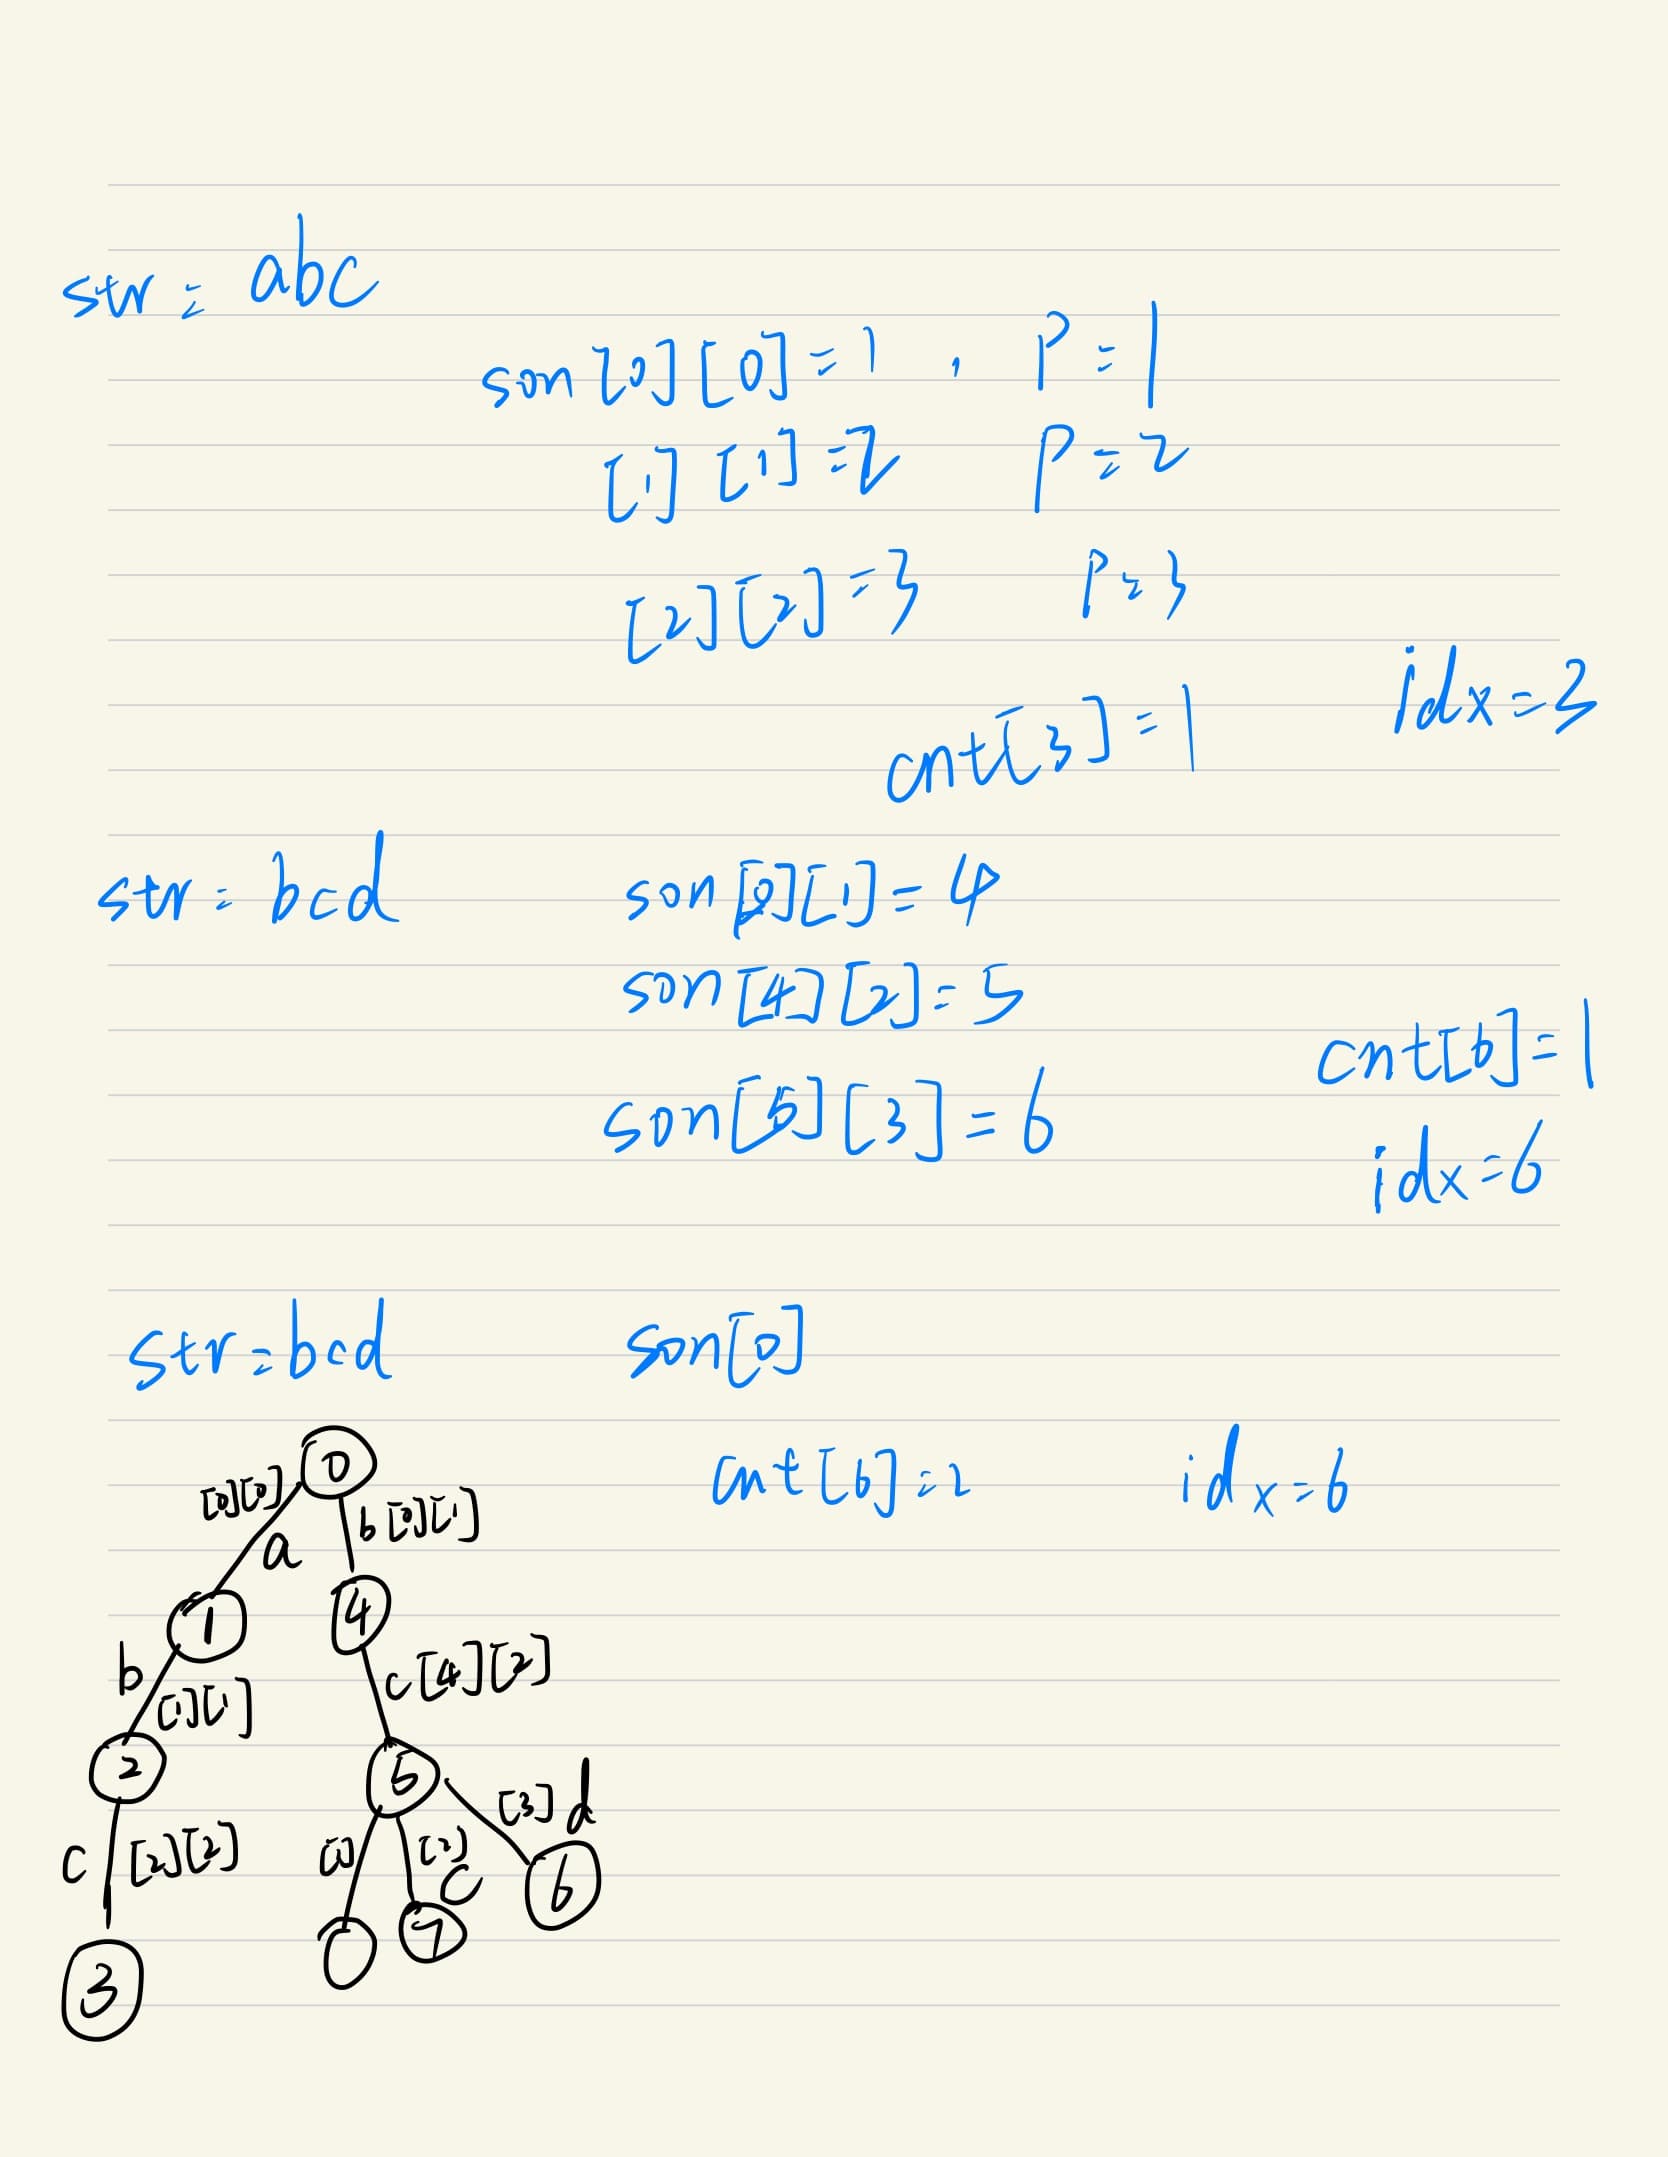 str = abc
son[0][0]=1 , P=1
[1][1]=2 P=2
[2][2]=3 P=3
cnt[3]=1 idx=3
str= bcd son[0][1]=4
son[4][2]=5
cnt[6]=1
son[5][3]=6
idx=6
str=bcd son[0]
cnt[6]=2 idx=6
0
[0][0] a b [0][1]
1 4
b [1][1] c [4][2]
2 5
[3] d
c [2][2] [2] c
6
7
3